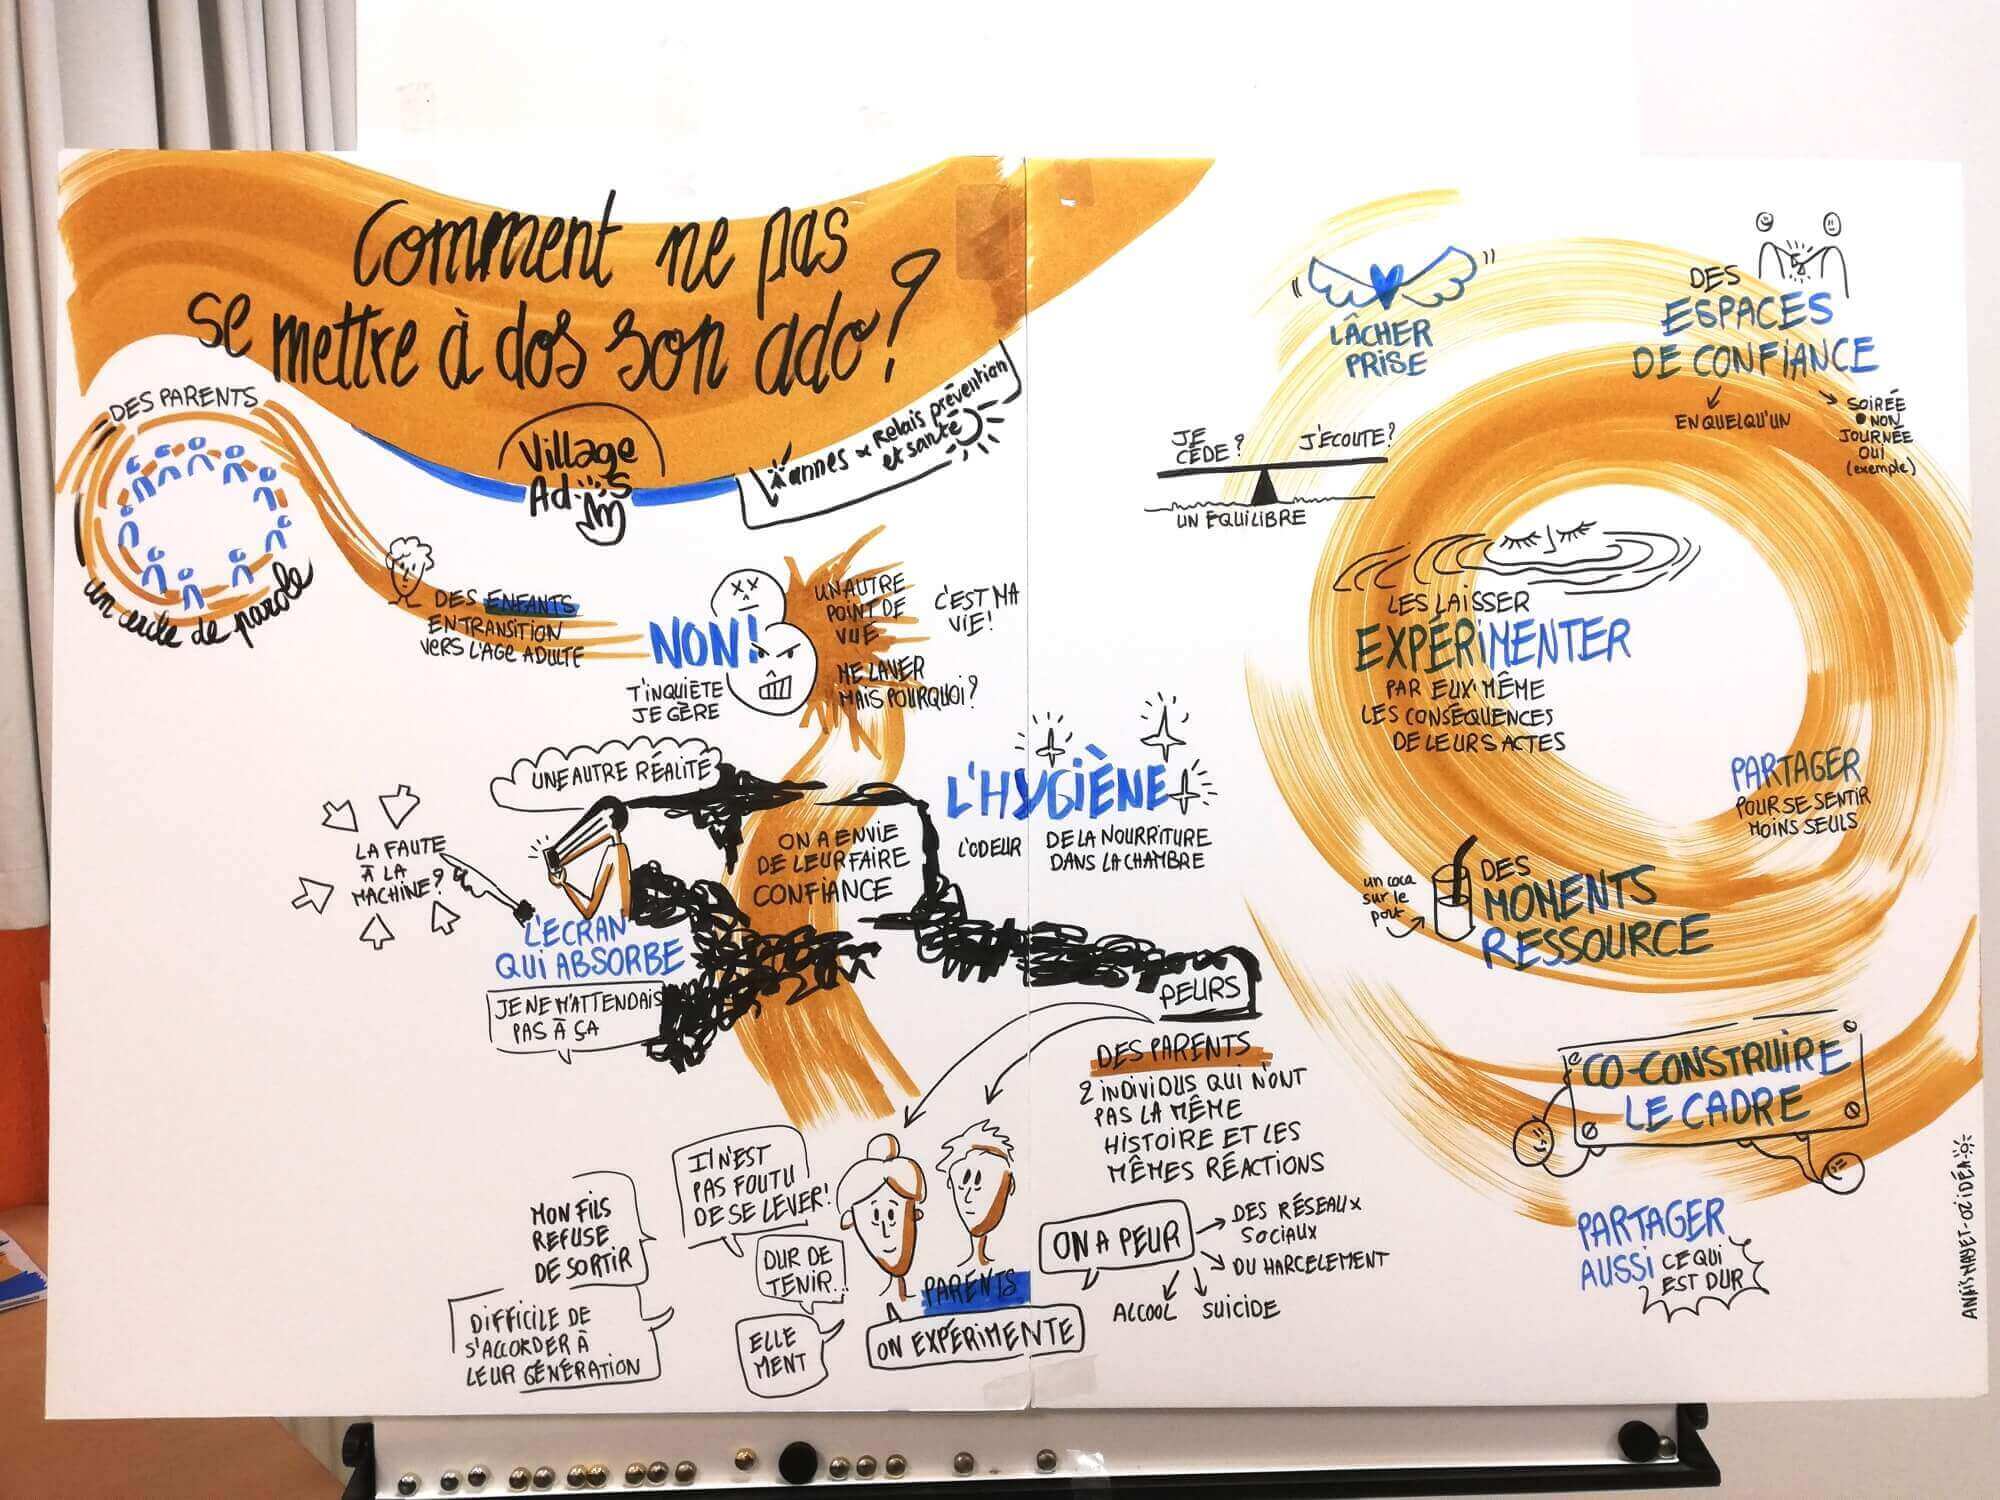 Comment ne pas
se mettre à dos son ado?
Village
Ad
Vannes
Relais prévention
et santé
DES PARENTS
un cercle de parole
DES ENFANTS
EN TRANSITION
VERS L'AGE ADULTE
NON!
T'INQUIÈTE
JE GÈRE
UN AUTRE
POINT DE
VUE
C'EST MA
VIE!
ME LAVER
MAIS POURQUOI?
UNE AUTRE RÉALITÉ
LA FAUTE
À LA
MACHINE?
L'ECRAN
QUI ABSORBE
JE NE M'ATTENDAIS
PAS À ÇA
ON A ENVIE
DE LEUR FAIRE
CONFIANCE
L'HYGIÈNE
L'ODEUR
DE LA NOURRITURE
DANS LA CHAMBRE
PEURS
DES PARENTS
2 INDIVIDUS QUI N'ONT
PAS LA MÊME
HISTOIRE ET LES
MÊMES RÉACTIONS
ON A PEUR
DES RÉSEAUX
SOCIAUX
DU HARCELEMENT
SUICIDE
ALCOOL
MON FILS
REFUSE
DE SORTIR
DIFFICILE DE
S'ACCORDER À
LEUR GÉNÉRATION
Il N'EST
PAS FOUTU
DE SE LEVER!
DUR DE
TENIR...
ELLE
MENT
PARENTS
ON EXPÉRIMENTE
LÂCHER
PRISE
DES
ESPACES
DE CONFIANCE
EN QUELQU'UN
SOIRÉE
NON
JOURNÉE
OUI
(exemple)
JE
CÈDE?
J'ÉCOUTE?
UN ÉQUILIBRE
LES LAISSER
EXPÉRIMENTER
PAR EUX-MÊME
LES CONSÉQUENCES
DE LEURS ACTES
PARTAGER
POUR SE SENTIR
MOINS SEULS
un coca
sur le
port
DES
MOMENTS
RESSOURCE
CO-CONSTRUIRE
LE CADRE
PARTAGER
AUSSI CE QUI
EST DUR
ANAÏS MAYET - OZ IDÉA